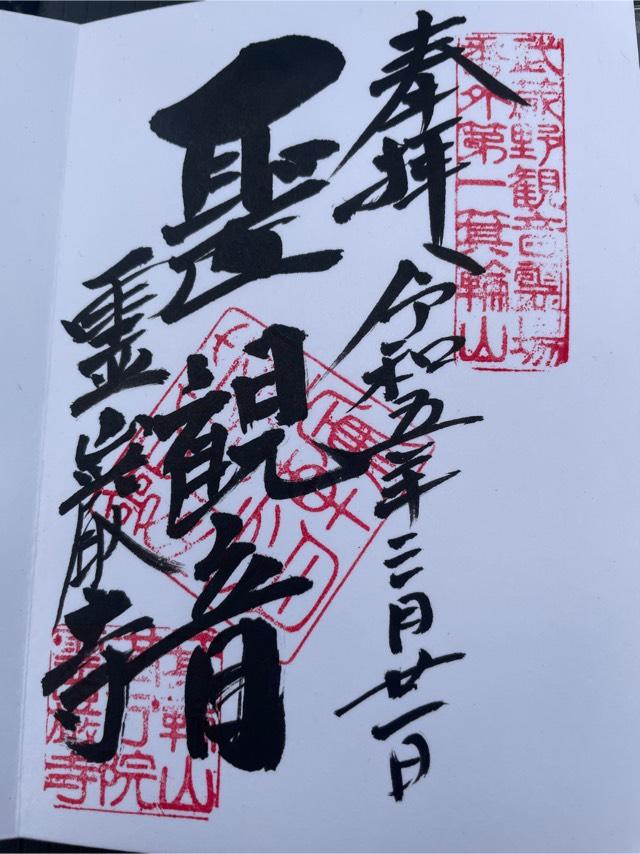 武蔵野観音霊場
番外第一箕輪山
奉拝 令和五年三月廿一日
聖観音
霊巌寺
箕輪山
満行院
霊巌寺